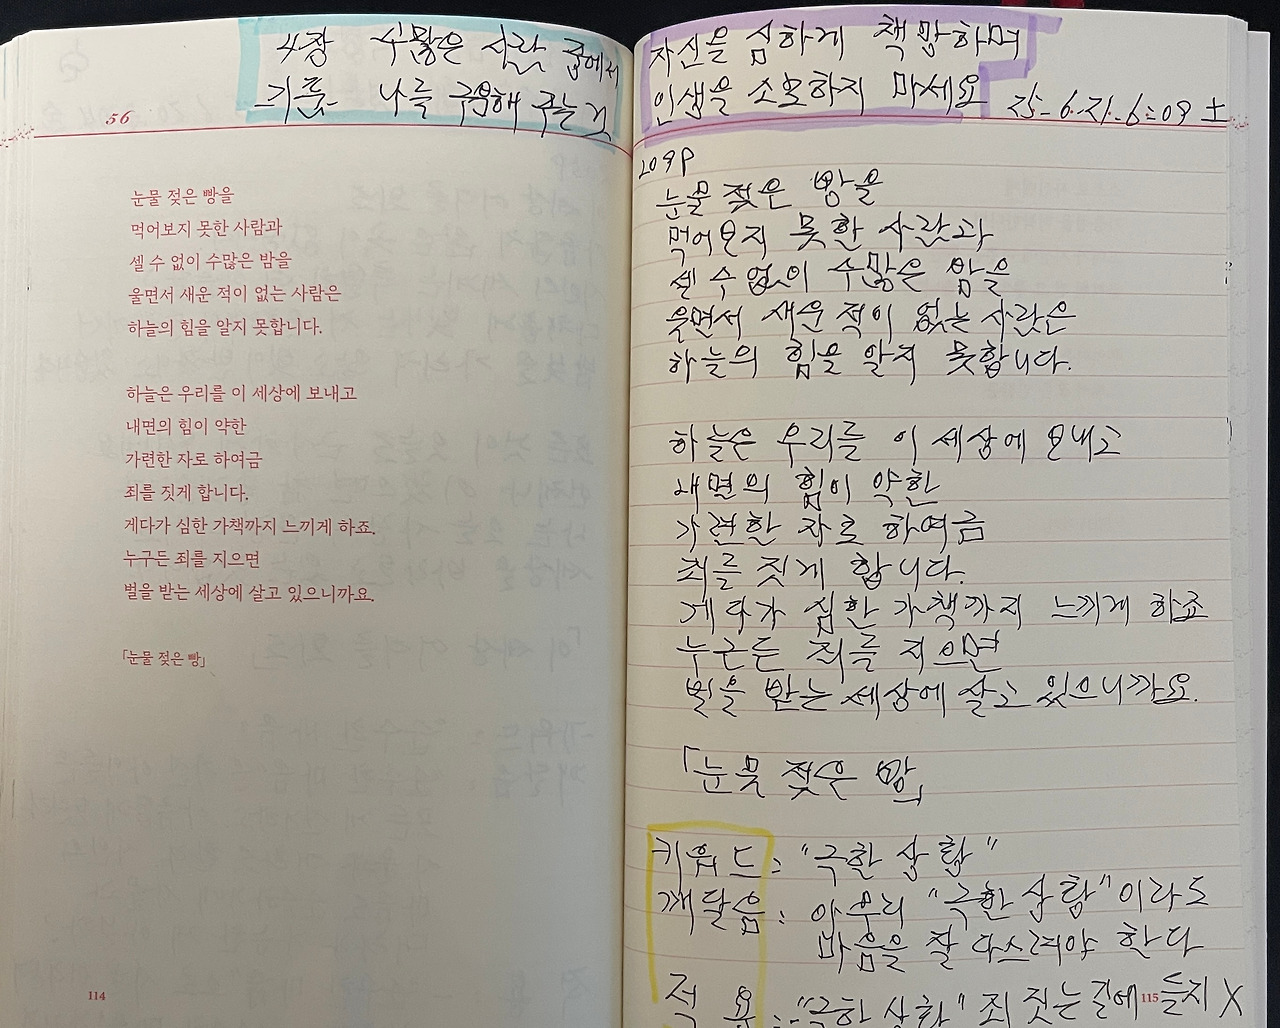 4장 수많은 사람 중에서
기품 나를 구원해 주는 것
56
눈물 젖은 빵을
먹어보지 못한 사람과
셀 수 없이 수많은 밤을
울면서 새운 적이 없는 사람은
하늘의 힘을 알지 못합니다.
하늘은 우리를 이 세상에 보내고
내면의 힘이 약한
가련한 자로 하여금
죄를 짓게 합니다.
게다가 심한 가책까지 느끼게 하죠.
누구든 죄를 지으면
벌을 받는 세상에 살고 있으니까요.
「눈물 젖은 빵」
114
자신을 심하게 책망하며
인생을 소모하지 마세요
25-6-21-6:09 土
209P
눈물 젖은 빵을
먹어보지 못한 사람과
셀 수 없이 수많은 밤을
울면서 새운 적이 없는 사람은
하늘의 힘을 알지 못합니다.
하늘은 우리를 이 세상에 보내고
내면의 힘이 약한
가련한 자로 하여금
죄를 짓게 합니다.
게다가 심한 가책까지 느끼게 하죠
누구든 죄를 지으면
벌을 받는 세상에 살고 있으니까요.
「눈물 젖은 빵」
키워드: "극한 상황"
깨달음: 아무리 "극한 상황"이라도
마음을 잘 다스려야 한다
적용: "극한 상황" 죄 짓는 길에 들지 X
115